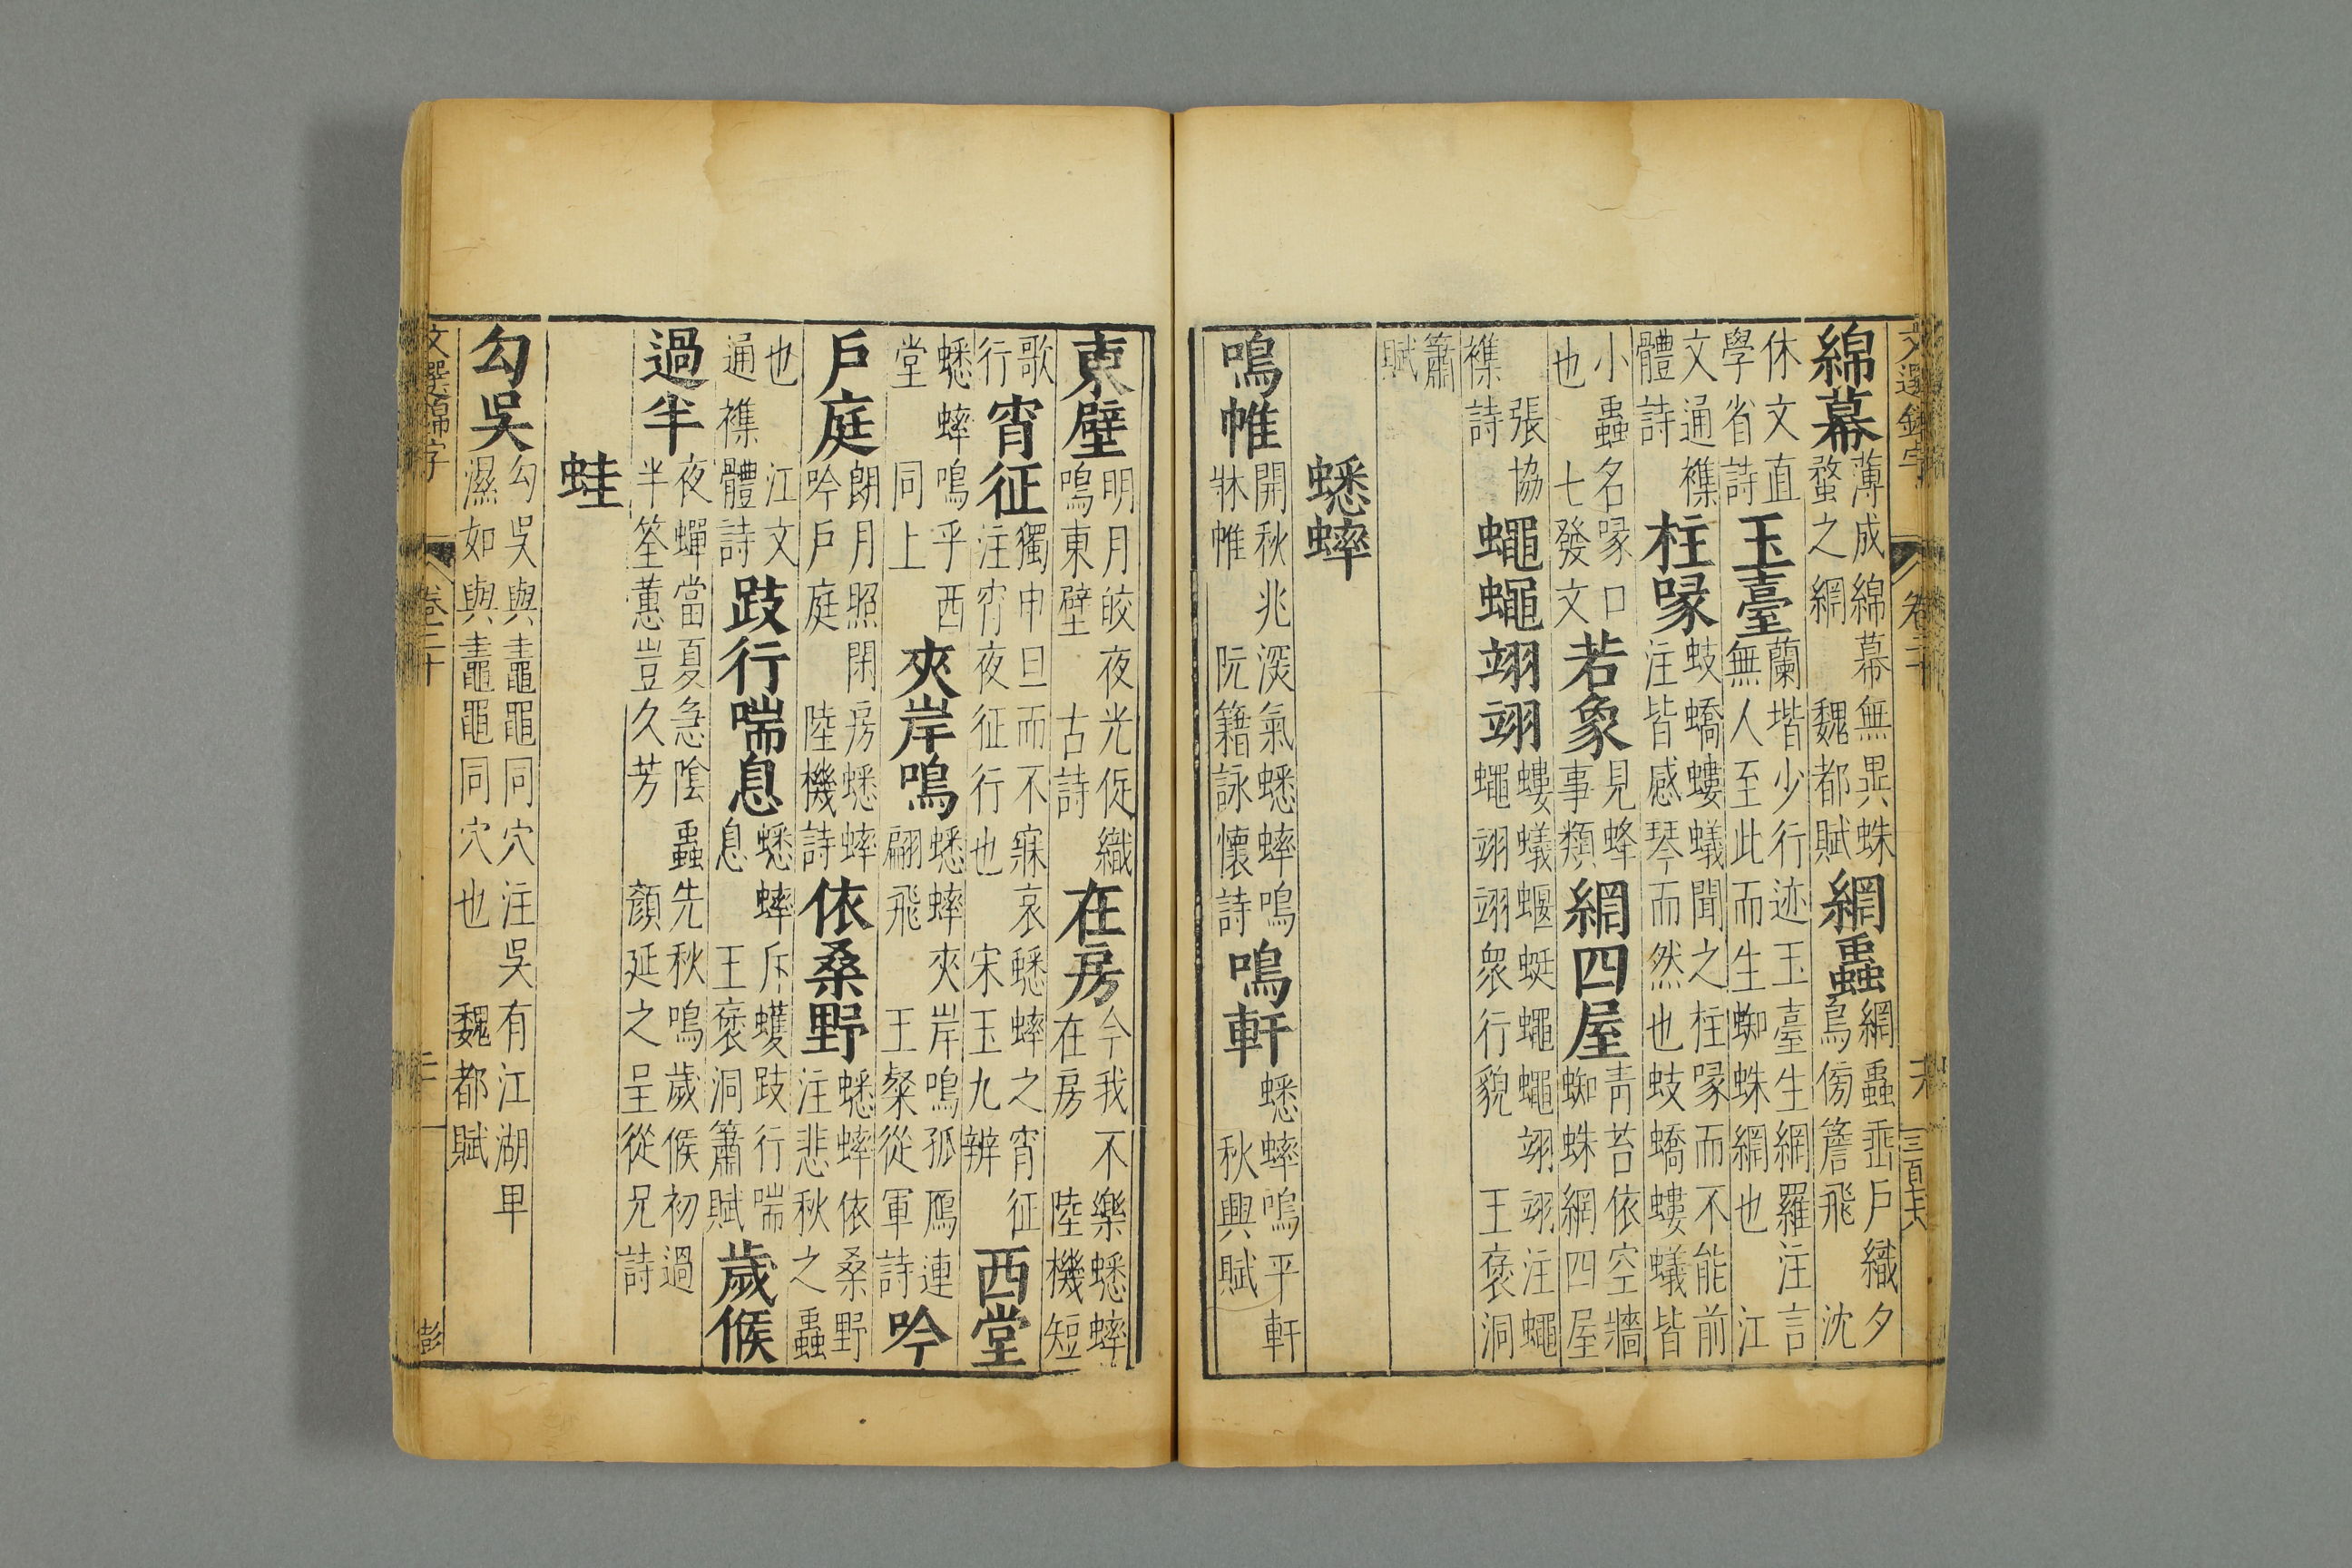 文選錦字
卷二十
綿幕薄成綿幕無異蛛蝥之網魏都賦網蟲網蟲垂戶織夕鳥傍簷飛沈
休文直學省詩玉臺蘭堦少行迹玉臺生網羅注言無人至此而生蜘蛛網也江
文通襍體詩柱喙蚑蟜螻蟻聞之柱喙而不能前注皆感琴而然也蚑蟜螻蟻皆
小蟲名喙口也七發文若象見蜂事類網四屋青苔依空牆蜘蛛網四屋
張協襍詩蠅蠅翊翊螻蟻蝘蜓蠅蠅翊翊注蠅蠅翊翊衆行貌王褒洞
簫賦
蟋蟀
鳴帷開秋兆涼氣蟋蟀鳴牀帷阮籍詠懷詩鳴軒蟋蟀鳴平軒秋興賦
東壁明月皎夜光促織鳴東壁古詩在房今我不樂蟋蟀在房陸機短
歌行宵征獨申旦而不寐哀蟋蟀之宵征注宵夜征行也宋玉九辨西堂
蟋蟀鳴乎西堂同上夾岸鳴蟋蟀夾岸鳴孤鴈連翩飛王粲從軍詩吟
戶庭朗月照閑房蟋蟀吟戶庭陸機詩依桑野蟋蟀依桑野注悲秋之蟲
也江文通襍體詩跂行喘息蟋蟀斥蠖跂行喘息王褒洞簫賦歲候
過半夜蟬當夏急陰蟲先秋鳴歲候初過半筌蕙豈久芳顏延之呈從兄詩
蛙
勾吳勾吳與鼃黽同穴注吳有江湖卑濕如與鼃黽同穴也魏都賦
文選錦字
卷二十
彭